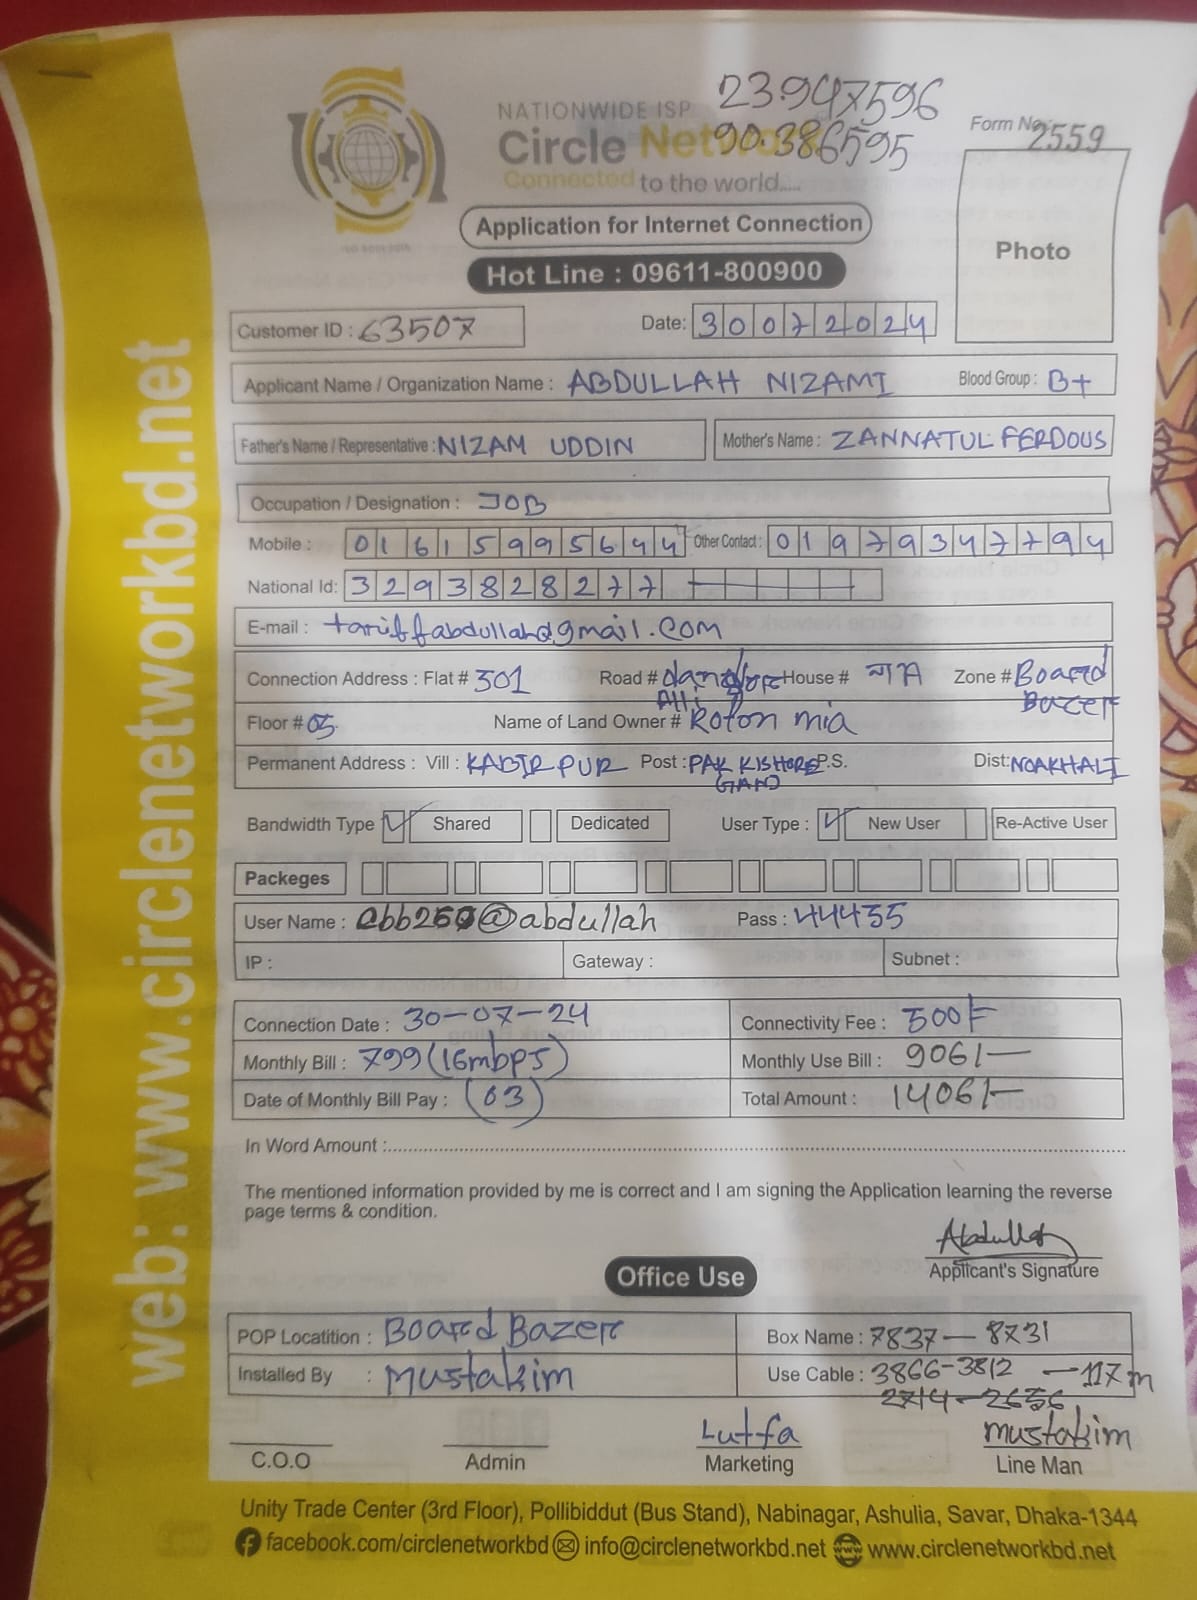 23.947596
90.386595
NATIONWIDE ISP
Circle Network
Connected to the world.....
Form No: 2559
Photo
Application for Internet Connection
Hot Line : 09611-800900
Customer ID : 63507
Date: 30072024
Applicant Name / Organization Name : ABDULLAH NIZAMI Blood Group : B+
Father's Name / Representative : NIZAM UDDIN Mother's Name : ZANNATUL FERDOUS
Occupation / Designation : JOB
Mobile : 01615995644 Other Contact : 01979347794
National Id: 3293828277
E-mail : tariffabdullah@gmail.com
Connection Address : Flat # 301 Road # House # Zone # Board Bazer
Floor # 05 Name of Land Owner # Roton mia
Permanent Address : Vill : KABIR PUR Post : PAK KISHORE GANJ P.S. Dist: NOAKHALI
Bandwidth Type Shared Dedicated User Type : New User Re-Active User
Packeges
User Name : @abdullah Pass : 44455
IP : Gateway : Subnet :
Connection Date : 30-07-24 Connectivity Fee : 500/-
Monthly Bill : 799 (16mbps) Monthly Use Bill : 906/-
Date of Monthly Bill Pay : (03) Total Amount : 1406/-
In Word Amount :
The mentioned information provided by me is correct and I am signing the Application learning the reverse
page terms & condition.
Abdullah
Applicant's Signature
Office Use
POP Locatition : Board Bazer Box Name : 7837 - 8731
Installed By : Mustakim Use Cable : 3866-3812 - 117 m
2714-2656
Lutfa mustakim
C.O.O Admin Marketing Line Man
Unity Trade Center (3rd Floor), Pollibiddut (Bus Stand), Nabinagar, Ashulia, Savar, Dhaka-1344
facebook.com/circlenetworkbd info@circlenetworkbd.net www.circlenetworkbd.net
web: www.circlenetworkbd.net